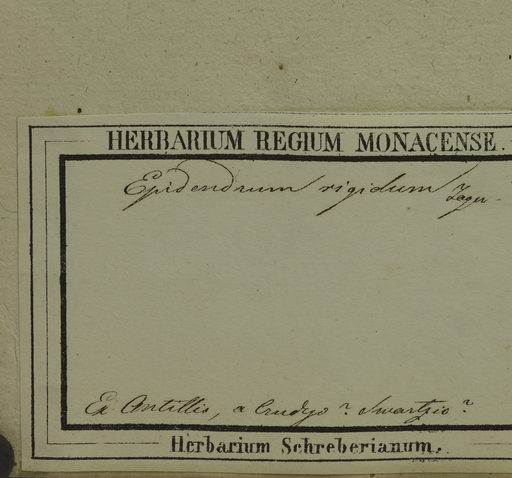 HERBARIUM REGIUM MONACENSE.
Epidendrum rigidum
Ex Antillis, a Crudyo? Swartzio?
Herbarium Schreberianum.